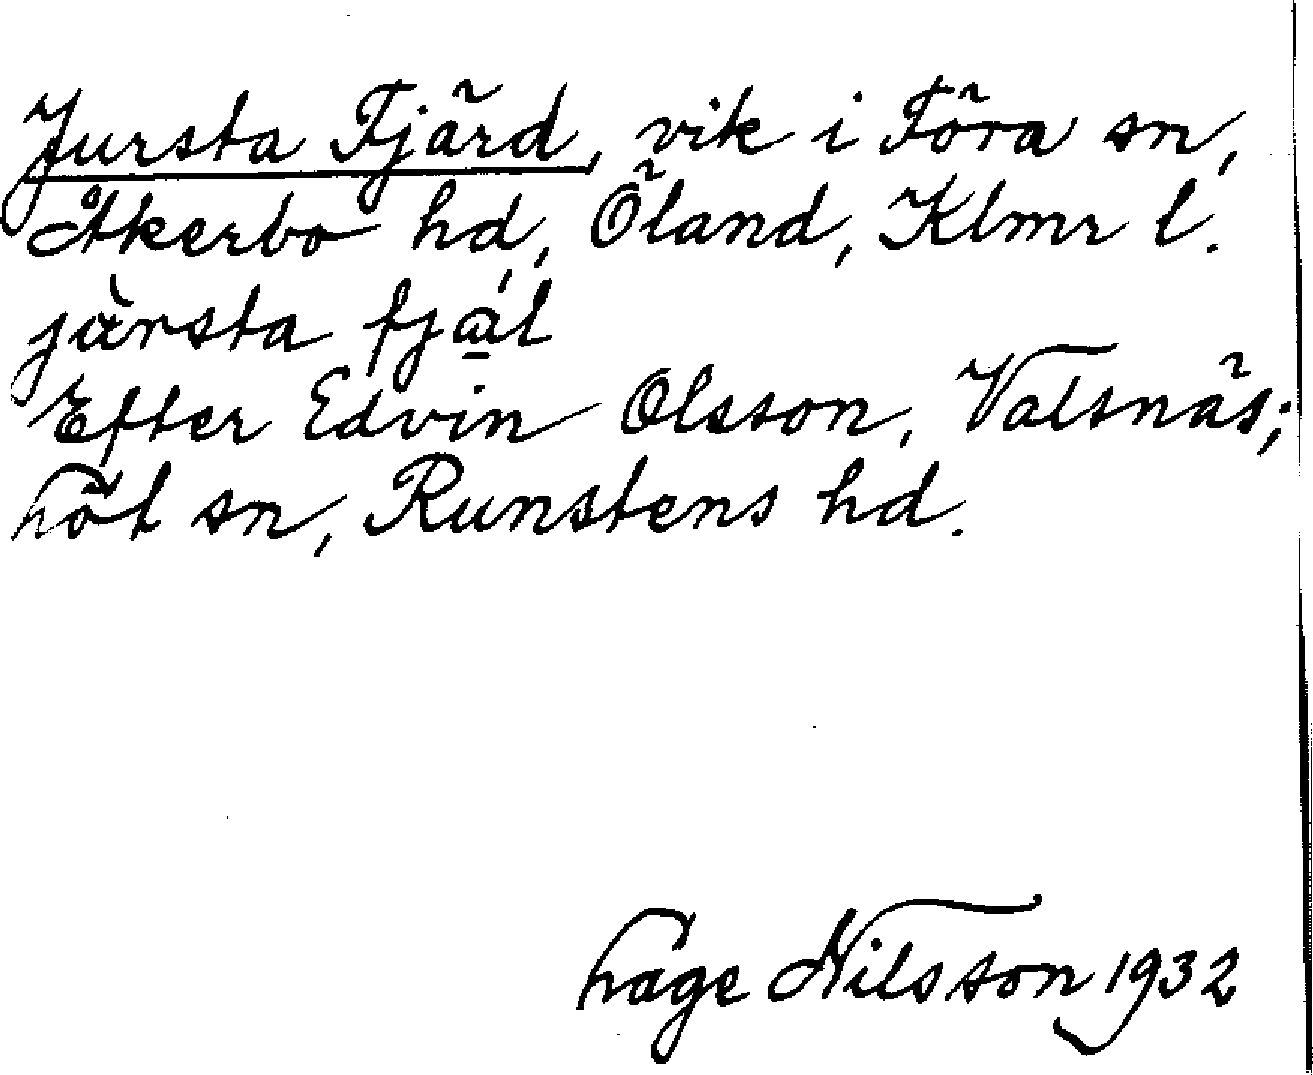 Jursta Fjärd, vik i Föra sn,
Åkerbo hd, Öland, Klmr l.
jàrsta fjál
Efter Edvin Olsson, Valsnäs;
Löt sn, Runstens hd.
Hage Nilsson 1932